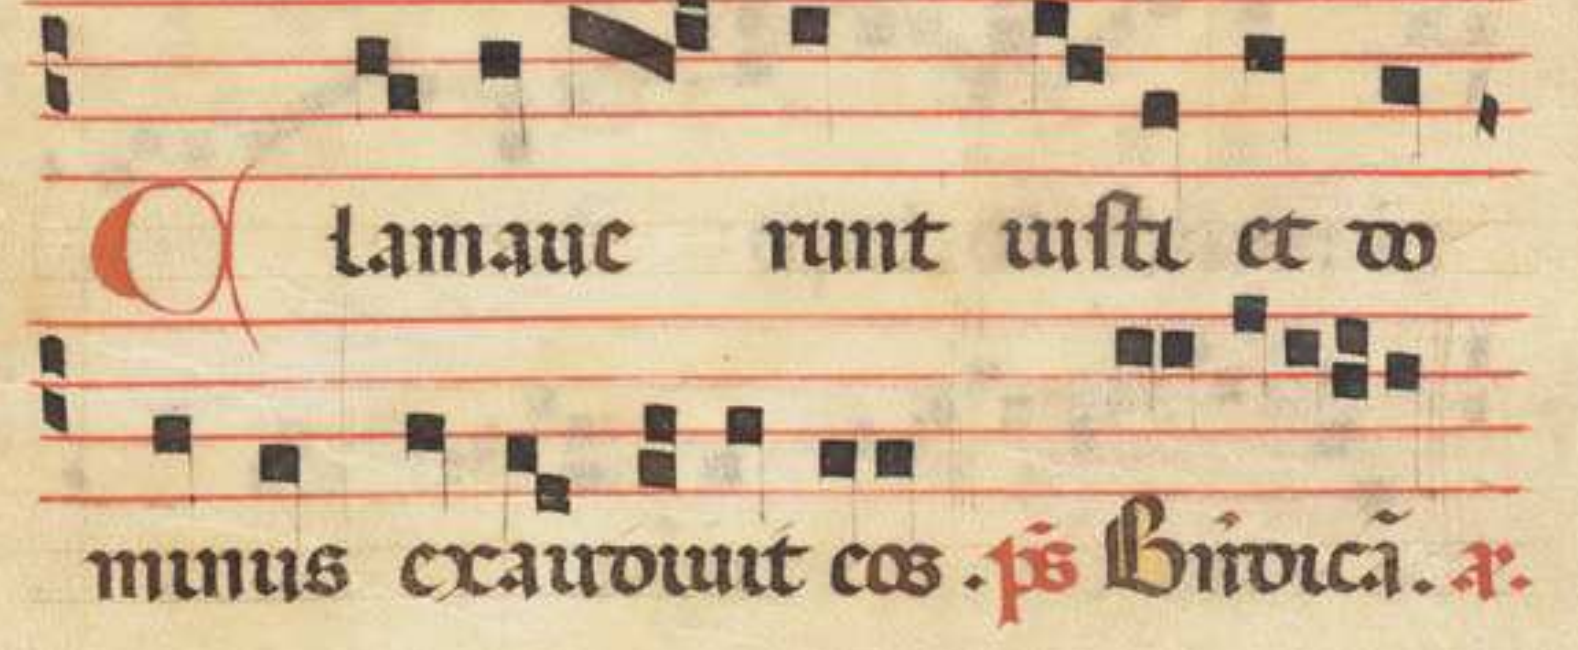 Clamaue runt iusti et do
minus exaudiuit eos . ps̄ Bn̄dicā. a.